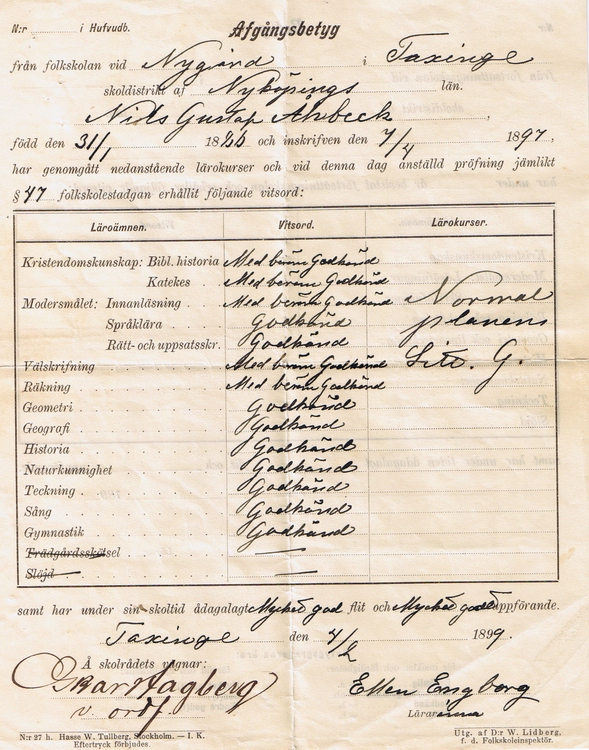 N:r i Hufvudb. Afgångsbetyg
från folkskolan vid Nygärd i Taxinge
skoldistrikt af Nyköpings län.
Nils Gustaf Ahrbeck,
född den 31/1 1886 och inskrifven den 7/4 1897,
har genomgått nedanstående lärokurser och vid denna dag anställd pröfning jämlikt
§ 47 folkskolestadgan erhållit följande vitsord:
Läroämnen. Vitsord. Lärokurser.
Kristendomskunskap: Bibl. historia Med beröm Godkänd
Katekes Med beröm Godkänd
Modersmålet: Innanläsning Med beröm Godkänd Normal
Språklära Godkänd planens
Rätt- och uppsatsskr. Godkänd
Välskrifning Med beröm Godkänd Litt. G.
Räkning Med beröm Godkänd
Geometri Godkänd
Geografi Godkänd
Historia Godkänd
Naturkunnighet Godkänd
Teckning Godkänd
Sång Godkänd
Gymnastik Godkänd
Trädgårdsskötsel —
Slöjd —
samt har under sin skoltid ådagalagt Mycket god flit och Mycket godt uppförande.
Taxinge den 1899.
Å skolrådets vägnar:
Oskar Hagberg Ellen Engborg
v. ordf. Lärarinna
N:r 27 h. Hasse W. Tullberg, Stockholm. — I. K. Utg. af D:r W. Lidberg,
Eftertryck förbjudes. f. d. Folkskoleinspektör.